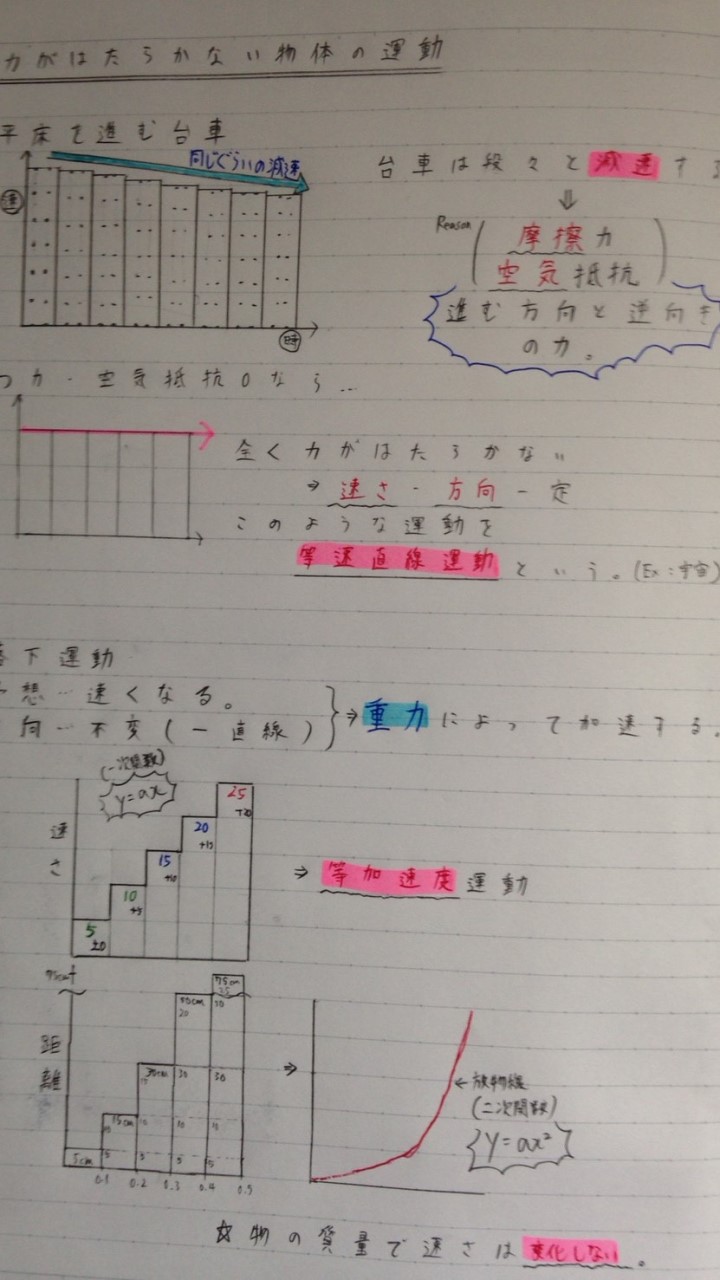 力がはたらかない物体の運動
平床で進む台車
同じぐらいの減速
速
時
台車は段々と減速する
⇓
Reason
摩擦力
空気抵抗
進む方向と逆向き
の力。
力・空気抵抗0なら…
全く力がはたらかない
⇒速さ・方向一定
このような運動を
等速直線運動という。(Ex:宇宙)
下運動
想…速くなる。
向…不変(一直線)
⇒重力によって加速する。
y=ax
速さ
5 ±0
10 +5
15 +10
20 +15
25 +20
⇒等加速度運動
75cm
距離
5cm
15cm
30cm
50cm
75cm
0.1 0.2 0.3 0.4 0.5
⇒
←放物線
(二次関数)
y=ax²
☆物の質量で速さは変化しない。